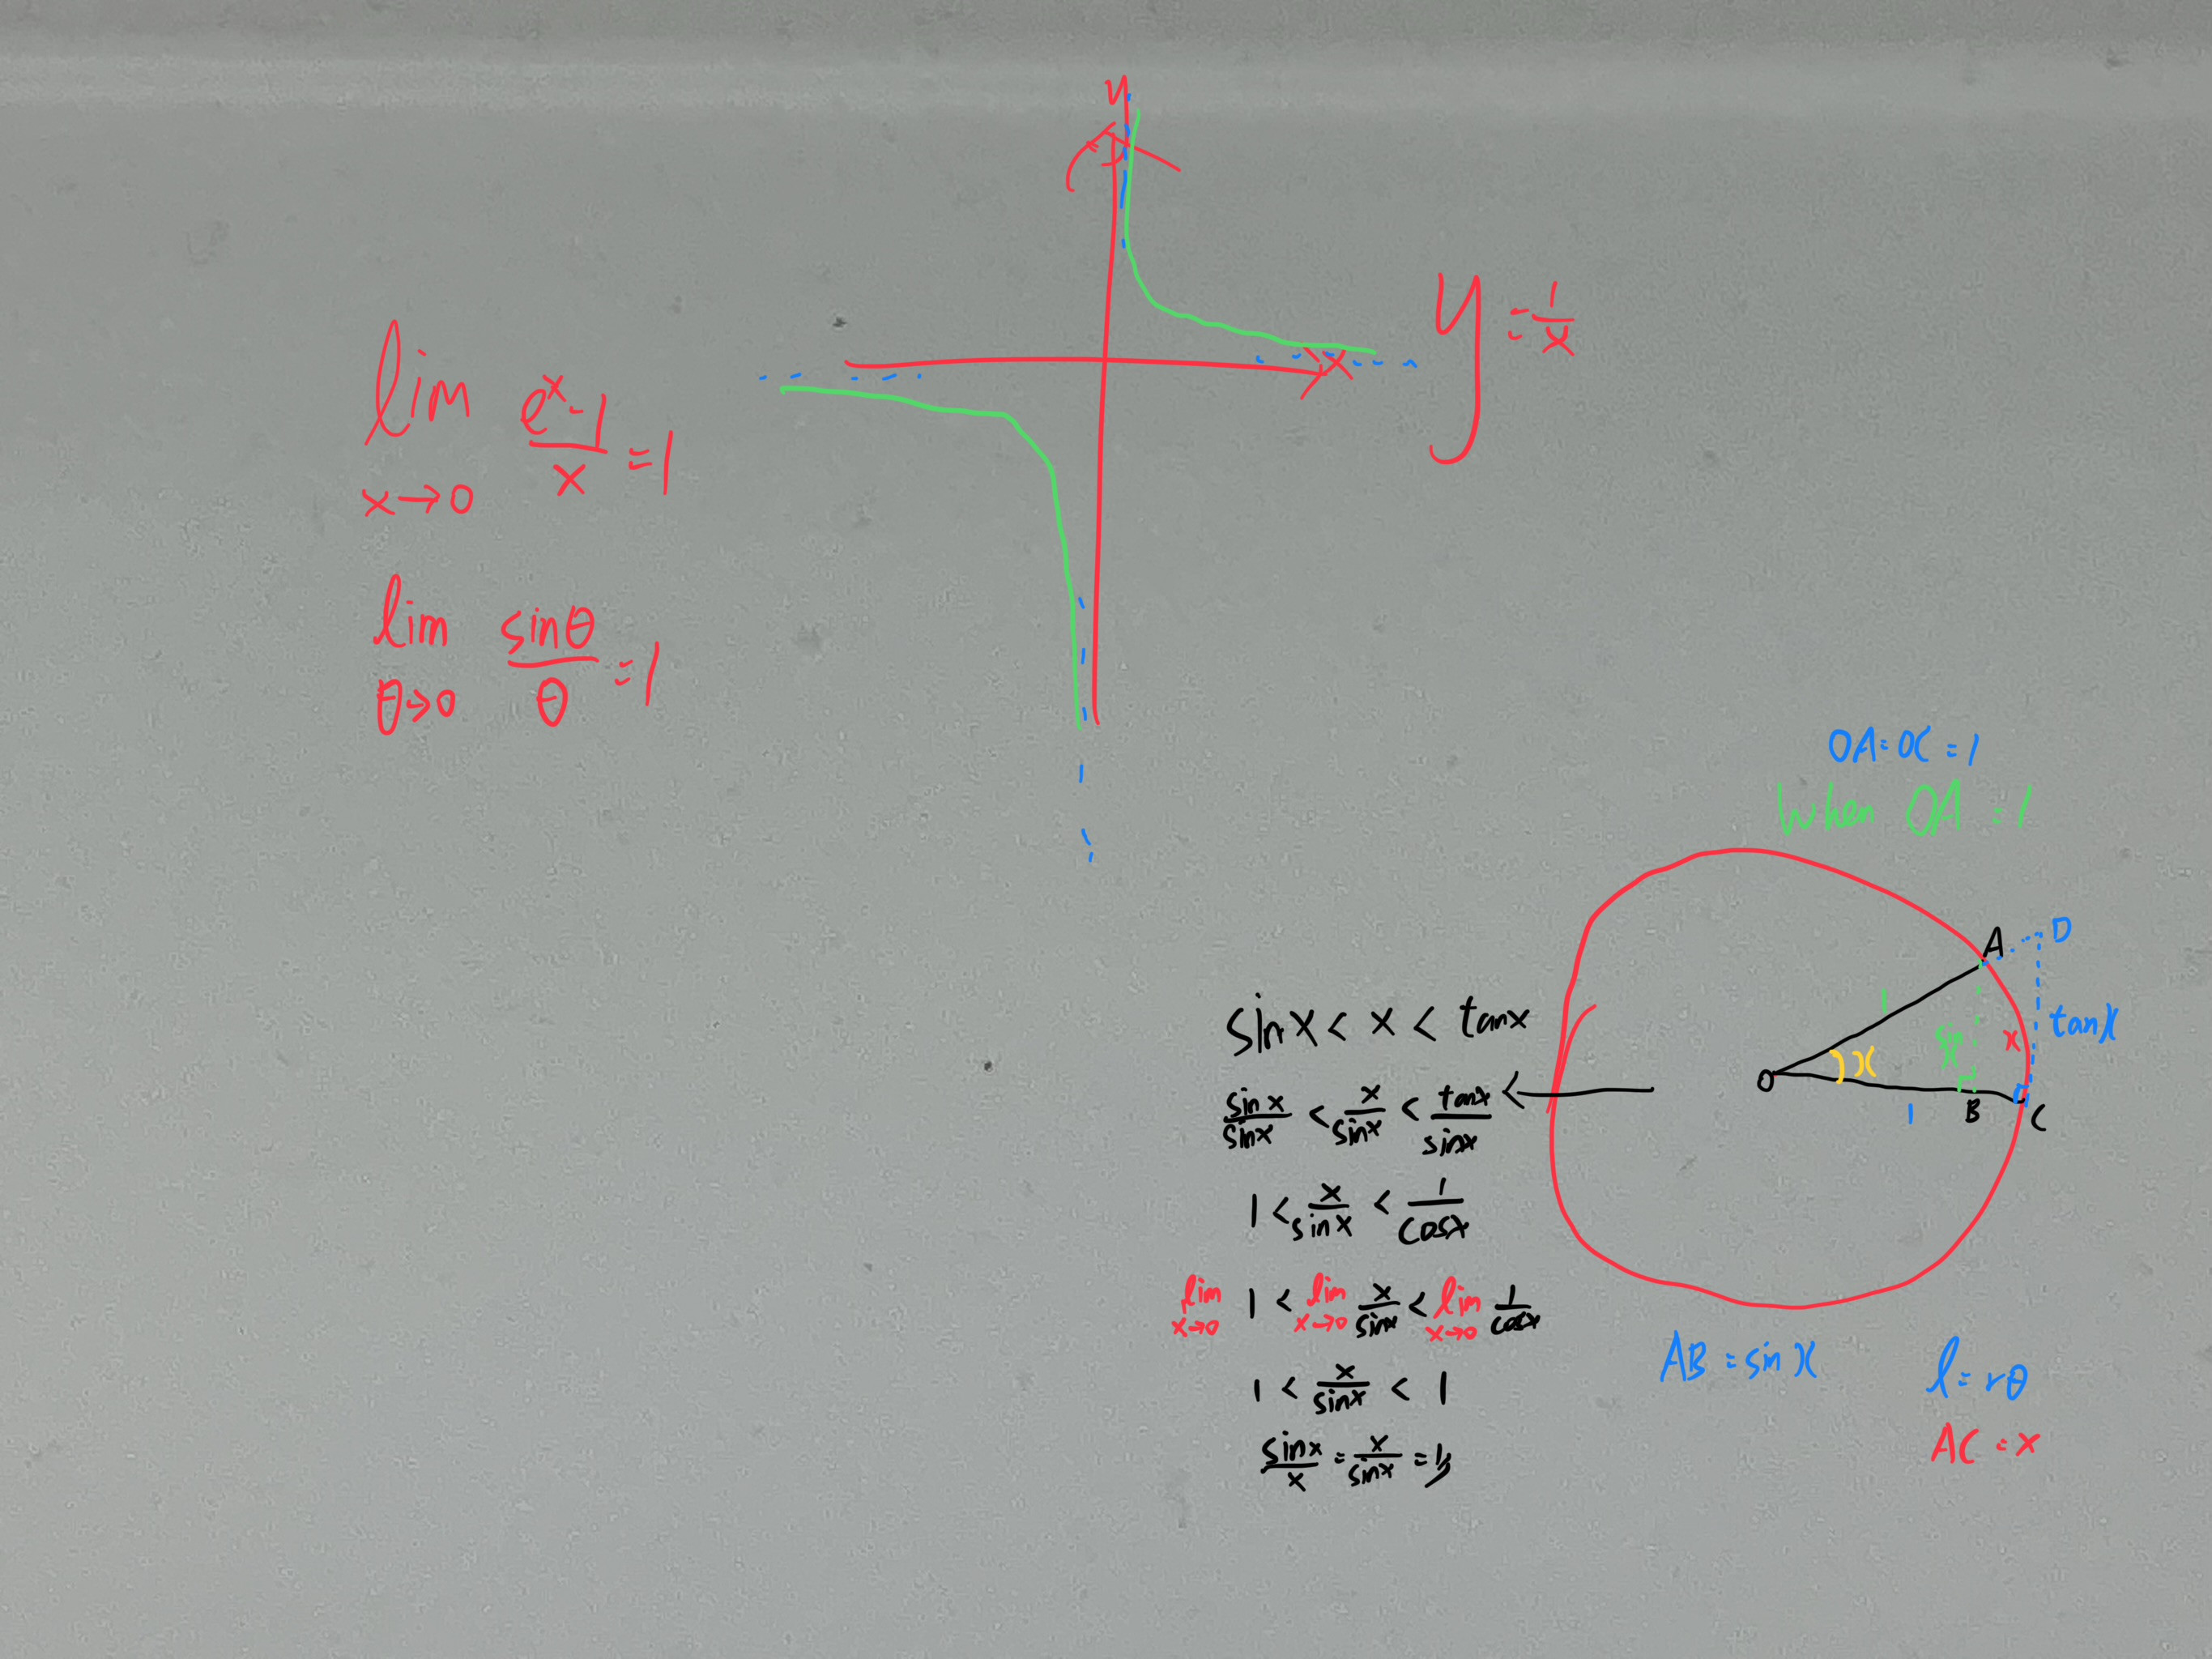 y
x
y = 1/x
lim x→0 (e^x - 1)/x = 1
lim θ→0 sinθ/θ = 1
OA = OC = 1
When OA = 1
A
D
1
sin x
x
tan x
O
x
1
B
C
sin x < x < tan x
sin x/sin x < x/sin x < tan x/sin x
1 < x/sin x < 1/cos x
lim x→0 1 < lim x→0 x/sin x < lim x→0 1/cos x
1 < x/sin x < 1
sin x/x = x/sin x = 1
AB = sin x
l = rθ
AC = x